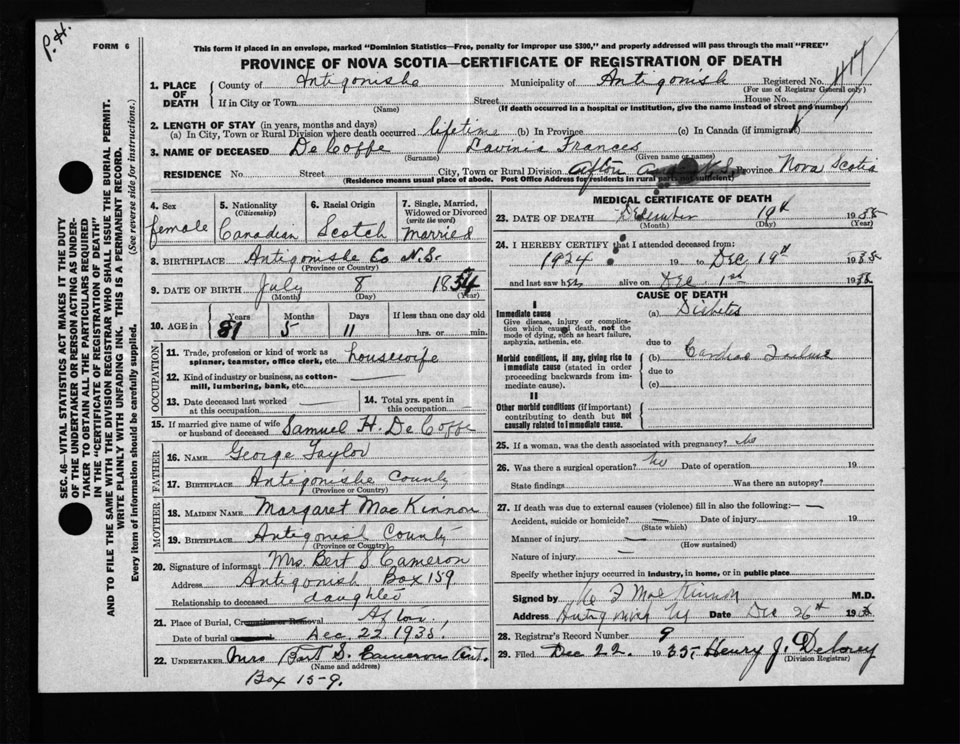 P. H.
FORM 6
This form if placed in an envelope, marked "Dominion Statistics—Free, penalty for improper use $300," and properly addressed will pass through the mail "FREE"
PROVINCE OF NOVA SCOTIA—CERTIFICATE OF REGISTRATION OF DEATH
1. PLACE OF DEATH { County of Antigonishe Municipality of Antigonish Registered No.
(For use of Registrar General only)
If in City or Town Street House No.
(Name) (If death occurred in a hospital or institution, give the name instead of street and number)
2. LENGTH OF STAY (in years, months and days)
(a) In City, Town or Rural Division where death occurred lifetime (b) In Province (c) In Canada (if immigrant)
3. NAME OF DECEASED DeCoffe Lavinia Frances
(Surname) (Given name or names)
RESIDENCE No. Street City, Town or Rural Division Afton Province Nova Scotia
(Residence means usual place of abode. Post Office Address for residents in rural parts not sufficient)
4. Sex female
5. Nationality (Citizenship) Canadian
6. Racial Origin Scotch
7. Single, Married, Widowed or Divorced (write the word) Married
8. BIRTHPLACE Antigonishe Co N.S.
(Province or Country)
9. DATE OF BIRTH July 8 1854
(Month) (Day) (Year)
10. AGE in Years Months Days If less than one day old
81 5 11 hrs. or min.
OCCUPATION
11. Trade, profession or kind of work as spinner, teamster, office clerk, etc. housewife
12. Kind of industry or business, as cotton-mill, lumbering, bank, etc. —
13. Date deceased last worked at this occupation —
14. Total yrs. spent in this occupation
15. If married give name of wife or husband of deceased Samuel H. DeCoffe
FATHER
16. NAME George Taylor
17. BIRTHPLACE Antigonishe County
(Province or Country)
MOTHER
18. MAIDEN NAME Margaret MacKinnon
19. BIRTHPLACE Antigonish County
(Province or Country)
20. Signature of informant Mrs. Bert S Cameron
Address Antigonish Box 159
Relationship to deceased daughter
21. Place of Burial, Cremation or Removal Afton
Date of burial Dec. 22 1935.
22. UNDERTAKER Mrs Bert S. Cameron Ant.
(Name and address)
Box 15-9.
MEDICAL CERTIFICATE OF DEATH
23. DATE OF DEATH December 19th 1935
(Month) (Day) (Year)
24. I HEREBY CERTIFY that I attended deceased from:
1924 19 to Dec 19th 1935
and last saw her alive on Dec 1st 1935
CAUSE OF DEATH
I
Immediate cause
Give disease, injury or complication which caused death, not the mode of dying, such as heart failure, asphyxia, asthenia, etc.
(a) Diabetes
due to
Morbid conditions, if any, giving rise to immediate cause (stated in order proceeding backwards from immediate cause).
(b) Cardiac Failure
due to
(c)
II
Other morbid conditions (if important) contributing to death but not causally related to immediate cause.
25. If a woman, was the death associated with pregnancy? No
26. Was there a surgical operation? No Date of operation 19
State findings Was there an autopsy?
27. If death was due to external causes (violence) fill in also the following:— —
Accident, suicide or homicide? — Date of injury 19
(State which)
Manner of injury —
(How sustained)
Nature of injury —
Specify whether injury occurred in industry, in home, or in public place
Signed by W F MacKinnon M.D.
Address Date Dec 26th 1935
28. Registrar's Record Number 9
29. Filed Dec 22. 1935 Henry J. Delorey
(Division Registrar)
SEC. 46—VITAL STATISTICS ACT MAKES IT THE DUTY
OF THE UNDERTAKER OR PERSON ACTING AS UNDER-
TAKER TO OBTAIN ALL THE PARTICULARS REQUIRED
IN THE "CERTIFICATE OF REGISTRATION OF DEATH"
AND TO FILE THE SAME WITH THE DIVISION REGISTRAR WHO SHALL ISSUE THE BURIAL PERMIT.
WRITE PLAINLY WITH UNFADING INK. THIS IS A PERMANENT RECORD.
Every item of information should be carefully supplied. (See reverse side for instructions.)